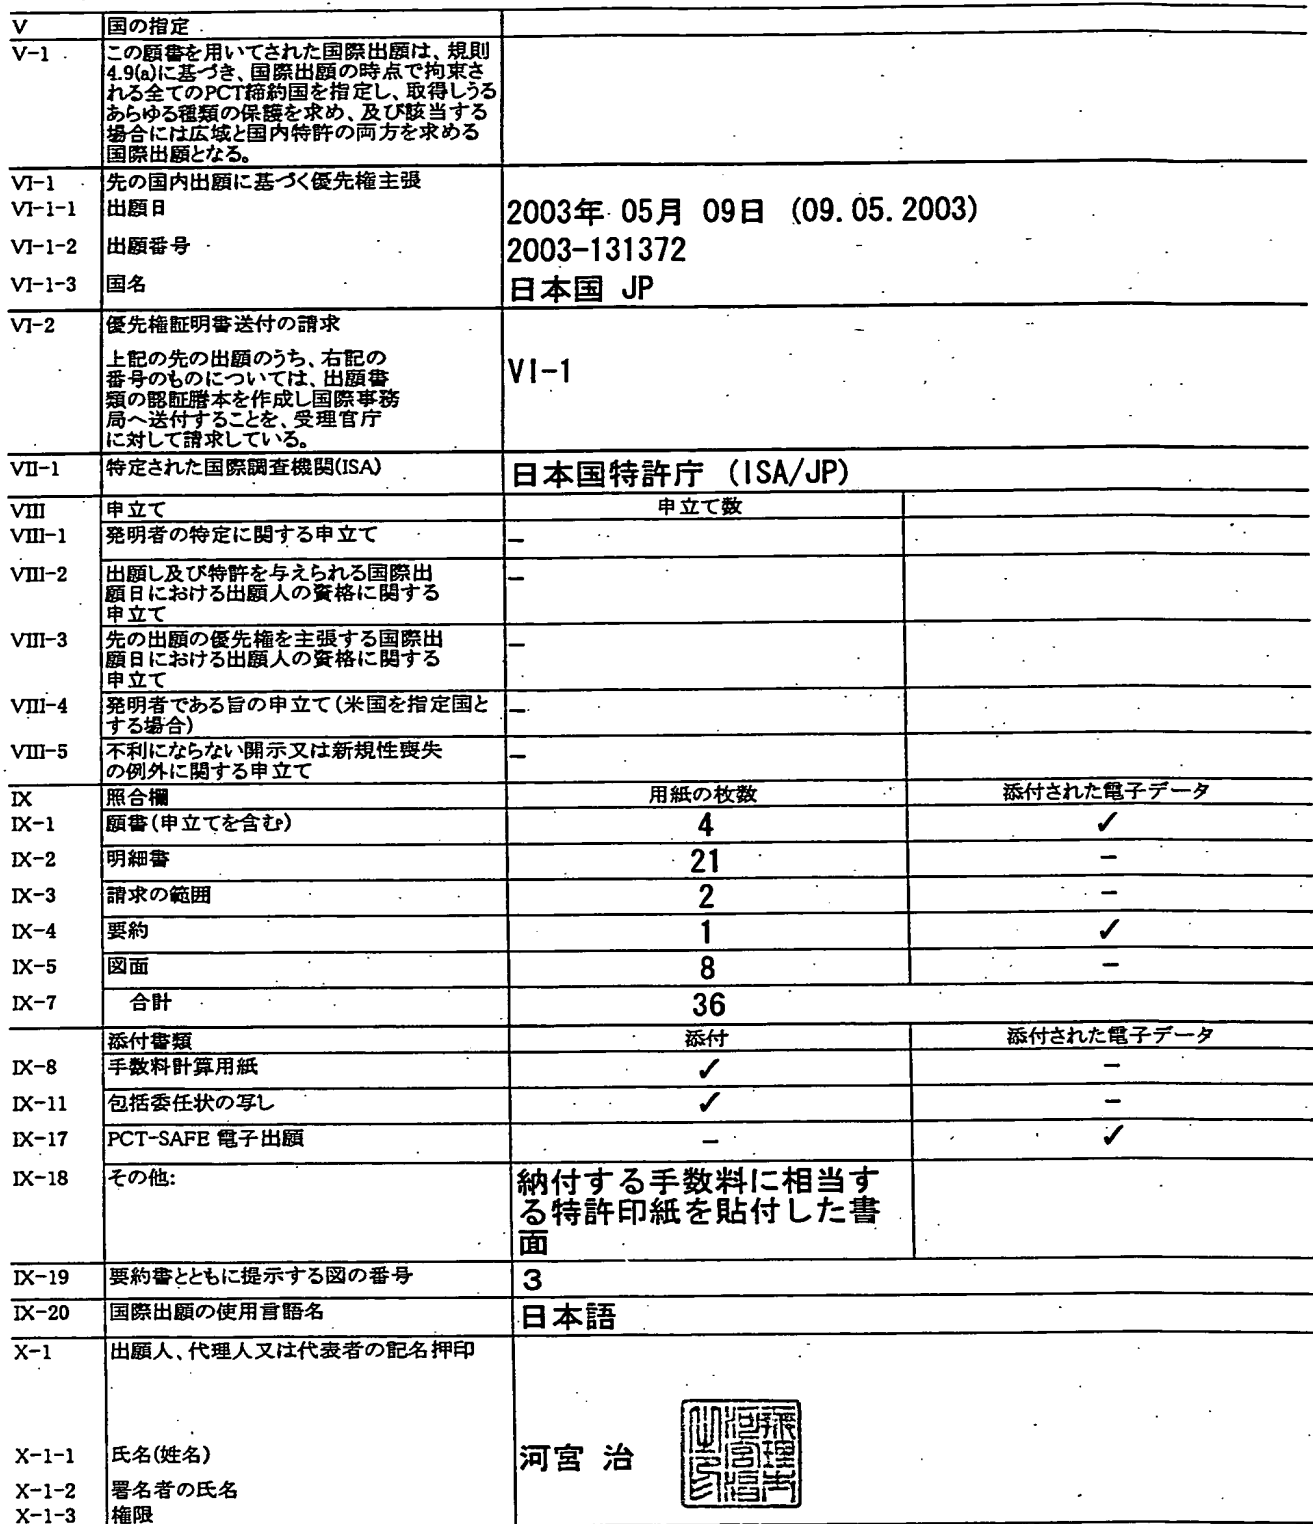 V 国の指定
V-1 この願書を用いてされた国際出願は、規則
4.9(a)に基づき、国際出願の時点で拘束さ
れる全てのPCT締約国を指定し、取得しうる
あらゆる種類の保護を求め、及び該当する
場合には広域と国内特許の両方を求める
国際出願となる。
VI-1 先の国内出願に基づく優先権主張
VI-1-1 出願日 2003年 05月 09日 (09.05.2003)
VI-1-2 出願番号 2003-131372
VI-1-3 国名 日本国 JP
VI-2 優先権証明書送付の請求
上記の先の出願のうち、右記の
番号のものについては、出願書
類の認証謄本を作成し国際事務
局へ送付することを、受理官庁
に対して請求している。
VI-1
VII-1 特定された国際調査機関(ISA) 日本国特許庁 (ISA/JP)
VIII 申立て 申立て数
VIII-1 発明者の特定に関する申立て –
VIII-2 出願し及び特許を与えられる国際出 –
願日における出願人の資格に関する
申立て
VIII-3 先の出願の優先権を主張する国際出 –
願日における出願人の資格に関する
申立て
VIII-4 発明者である旨の申立て(米国を指定国と –
する場合)
VIII-5 不利にならない開示又は新規性喪失 –
の例外に関する申立て
IX 照合欄 用紙の枚数 添付された電子データ
IX-1 願書(申立てを含む) 4 ✓
IX-2 明細書 21 –
IX-3 請求の範囲 2 –
IX-4 要約 1 ✓
IX-5 図面 8 –
IX-7 合計 36
添付書類 添付 添付された電子データ
IX-8 手数料計算用紙 ✓ –
IX-11 包括委任状の写し ✓ –
IX-17 PCT-SAFE 電子出願 – ✓
IX-18 その他: 納付する手数料に相当す
る特許印紙を貼付した書
面
IX-19 要約書とともに提示する図の番号 3
IX-20 国際出願の使用言語名 日本語
X-1 出願人、代理人又は代表者の記名押印
X-1-1 氏名(姓名) 河宮 治
X-1-2 署名者の氏名
X-1-3 権限